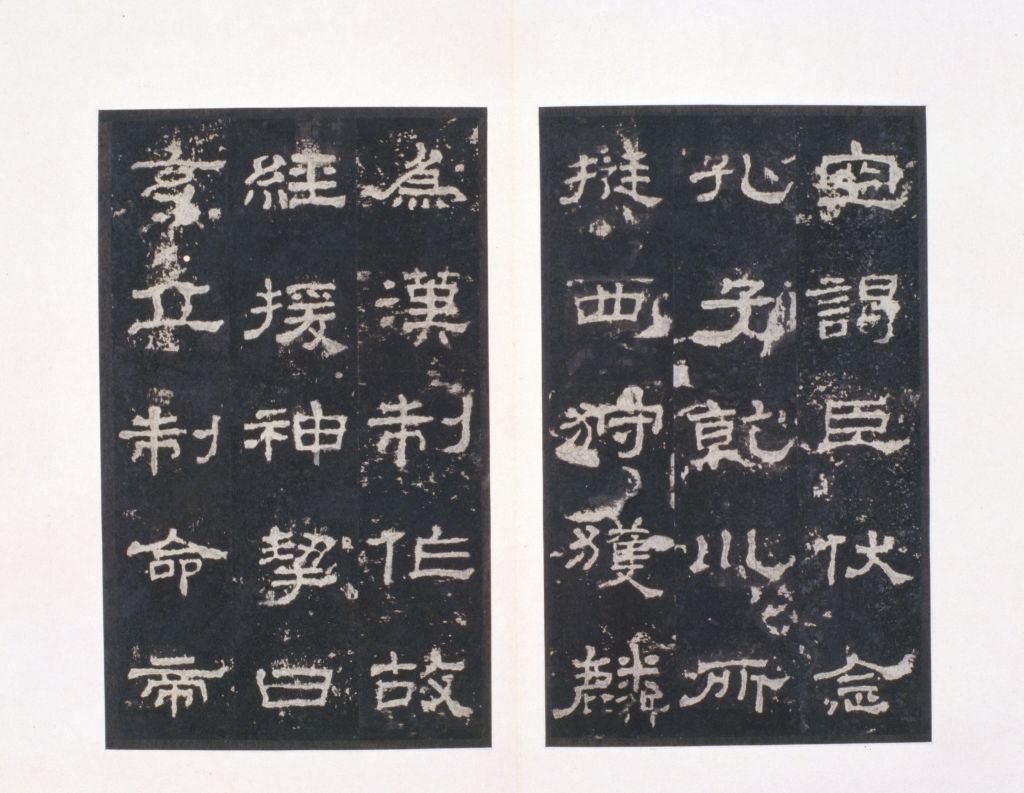 空謁臣伏念
孔子乾川所
挺西狩獲麟
為漢制作故
經援神挈曰
玄丘制命帝